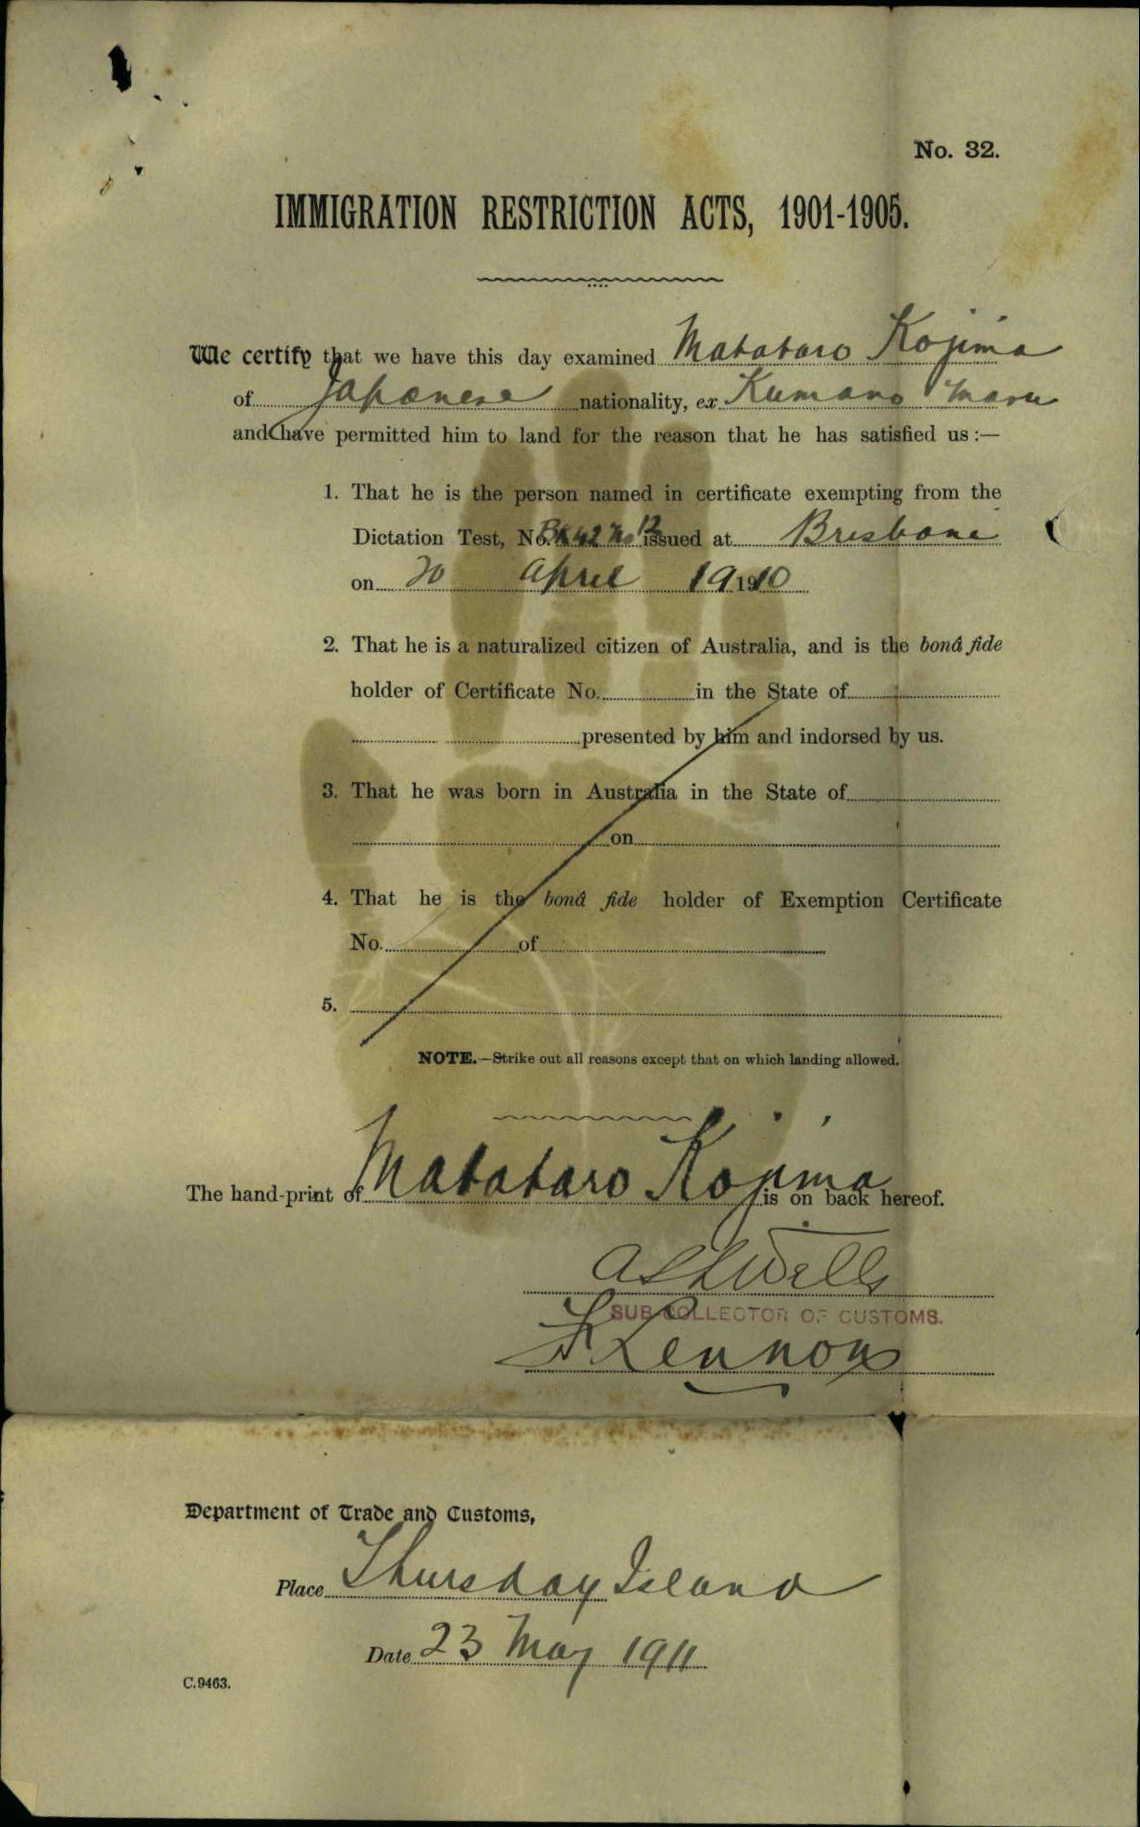 No. 32.
IMMIGRATION RESTRICTION ACTS, 1901-1905.
We certify that we have this day examined Matataro Kojima
of Japanese nationality, ex Kumano Maru
and have permitted him to land for the reason that he has satisfied us :—
1. That he is the person named in certificate exempting from the
Dictation Test, No. Bk 42 No 12 issued at Brisbane
on 20 April 1910
2. That he is a naturalized citizen of Australia, and is the bonâ fide
holder of Certificate No. in the State of
presented by him and indorsed by us.
3. That he was born in Australia in the State of
on
4. That he is the bonâ fide holder of Exemption Certificate
No. of
5.
NOTE.—Strike out all reasons except that on which landing allowed.
The hand-print of Matataro Kojima is on back hereof.
Wells
SUB COLLECTOR OF CUSTOMS.
Lennon
Department of Trade and Customs,
Place Thursday Island
Date 23 May 1911
C.9463.